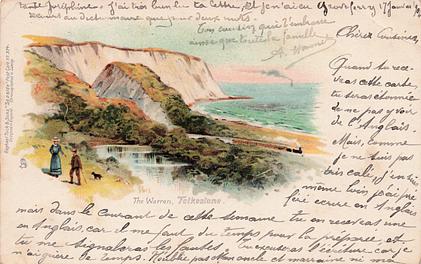 tante Joséphine. J'ai très bien lu ta lettre, et je n'ai eu
au dictionnaire que pour deux mots.
Ton cousin qui t'embrasse
ainsi que toute la famille
A.
Chère cousine,
Quand tu re-
cevras cette carte,
tu seras étonnée
de ne pas y voir
de l'Anglais.
Mais, comme
je ne suis pas
très calé, j'ai
même loin j'ai pré
féré écrire en Anglais
mais dans le courant de cette semaine tu en recevras une
en Anglais, car il me faut du temps pour la préparer et
tu me signaleras les fautes. Tu excuseras l'écriture car je
n'ai guère de temps. N'oublie pas Marraine ni ma
The Warren, Folkestone.